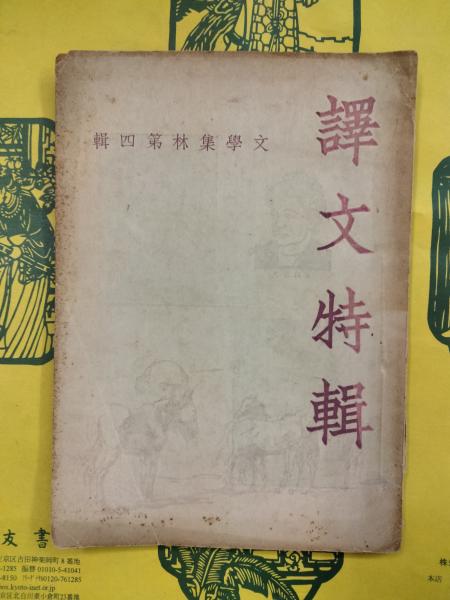 譯文特輯
文學集林第四輯
友 書
京区吉田神楽岡町8番地
-1285 振替 01010-5-41041
-8150 ﾌﾘｰﾀﾞｲﾔﾙ0120-761285
www.kyoto-inet.or.jp
京区北白川東小倉町23番地
株
本店